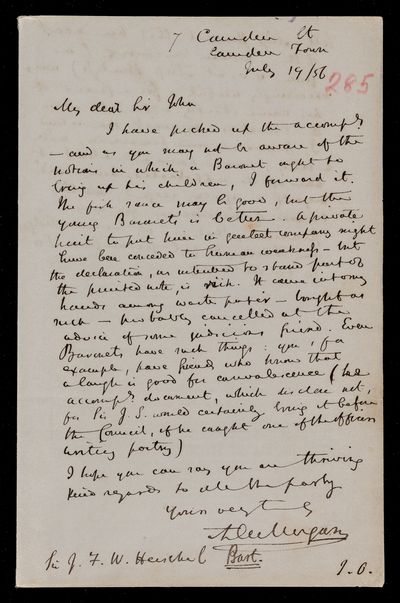 7 Camden St
Camden Town
July 19/56
285
My dear Sir John
I have picked up the accomp.g
– and as you may not be aware of the
notions in which a Baronet ought to
bring up his children, I forward it.
The fish sauce may be good, but the
young Baronets' is better. A private
hint to put him in genteel company might
have been conceded to human weakness – but
the declaration, as intended to stand part of
the printed note, is rich. It came into my
hands among waste paper – bought as
such – probably cancelled at the
advice of some judicious friend. Even
Baronets have such things: you, for
example, have friends who know that
a laugh is good for convalescence (see
accomp.g document, which disclose not,
for Sir J. S. would certainly bring it before
the Council, if he caught one of the officers
writing poetry)
I hope you can say you are thriving
Kind regards to all the party
Yours very truly
A De Morgan
Sir J. F. W. Herschel Bart.